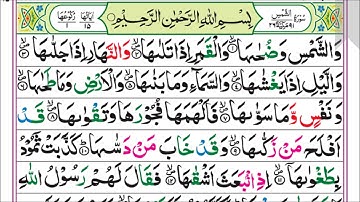 سُوْرَةُ الشَّمْسِ
بِسْمِ اللّٰهِ الرَّحْمٰنِ الرَّحِيْمِ
اٰيَاتُهَا ١٥ رُكُوْعُهَا ١
وَالشَّمْسِ وَضُحٰىهَا ۝١ وَالْقَمَرِ اِذَا تَلٰىهَا ۝٢ وَالنَّهَارِ اِذَا جَلّٰىهَا ۝٣
وَالَّيْلِ اِذَا يَغْشٰىهَا ۝٤ وَالسَّمَآءِ وَمَا بَنٰىهَا ۝٥ وَالْاَرْضِ وَمَا طَحٰىهَا ۝٦
وَنَفْسٍ وَّمَا سَوّٰىهَا ۝٧ فَاَلْهَمَهَا فُجُوْرَهَا وَتَقْوٰىهَا ۝٨ قَدْ
اَفْلَحَ مَنْ زَكّٰىهَا ۝٩ وَقَدْ خَابَ مَنْ دَسّٰىهَا ۝١٠ كَذَّبَتْ ثَمُوْدُ
بِطَغْوٰىهَآ ۝١١ اِذِ انْۢبَعَثَ اَشْقٰىهَا ۝١٢ فَقَالَ لَهُمْ رَسُوْلُ اللّٰهِ